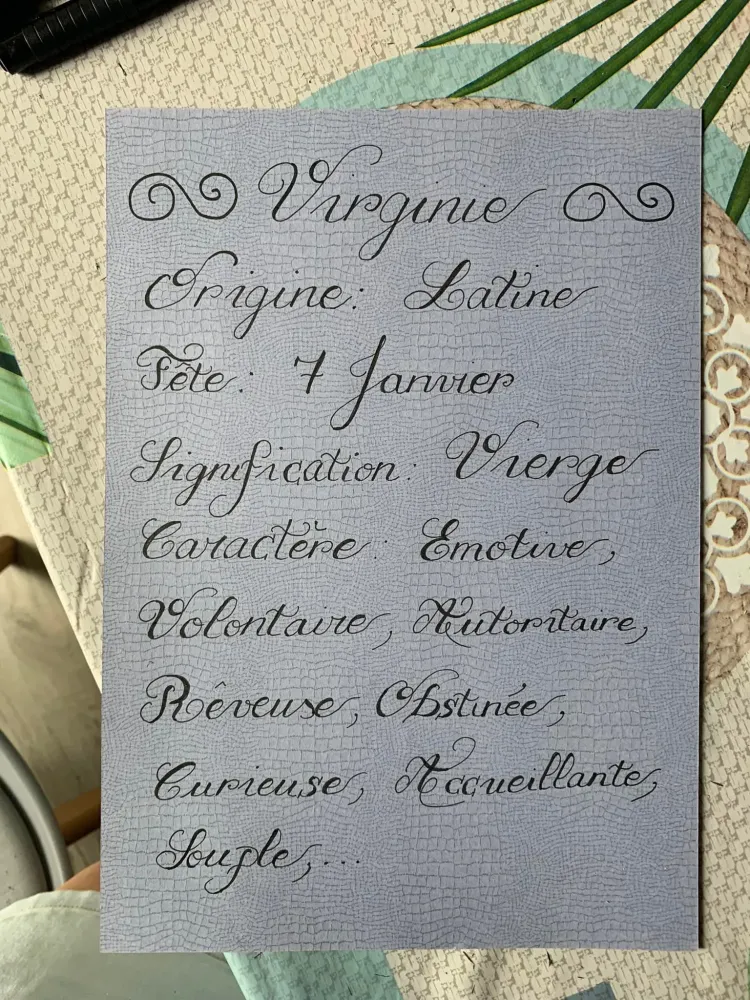 Virginie
Origine: Latine
Fête: 7 Janvier
Signification: Vierge
Caractère: Emotive,
Volontaire, Autoritaire,
Rêveuse, Obstinée,
Curieuse, Accueillante,
Souple,...